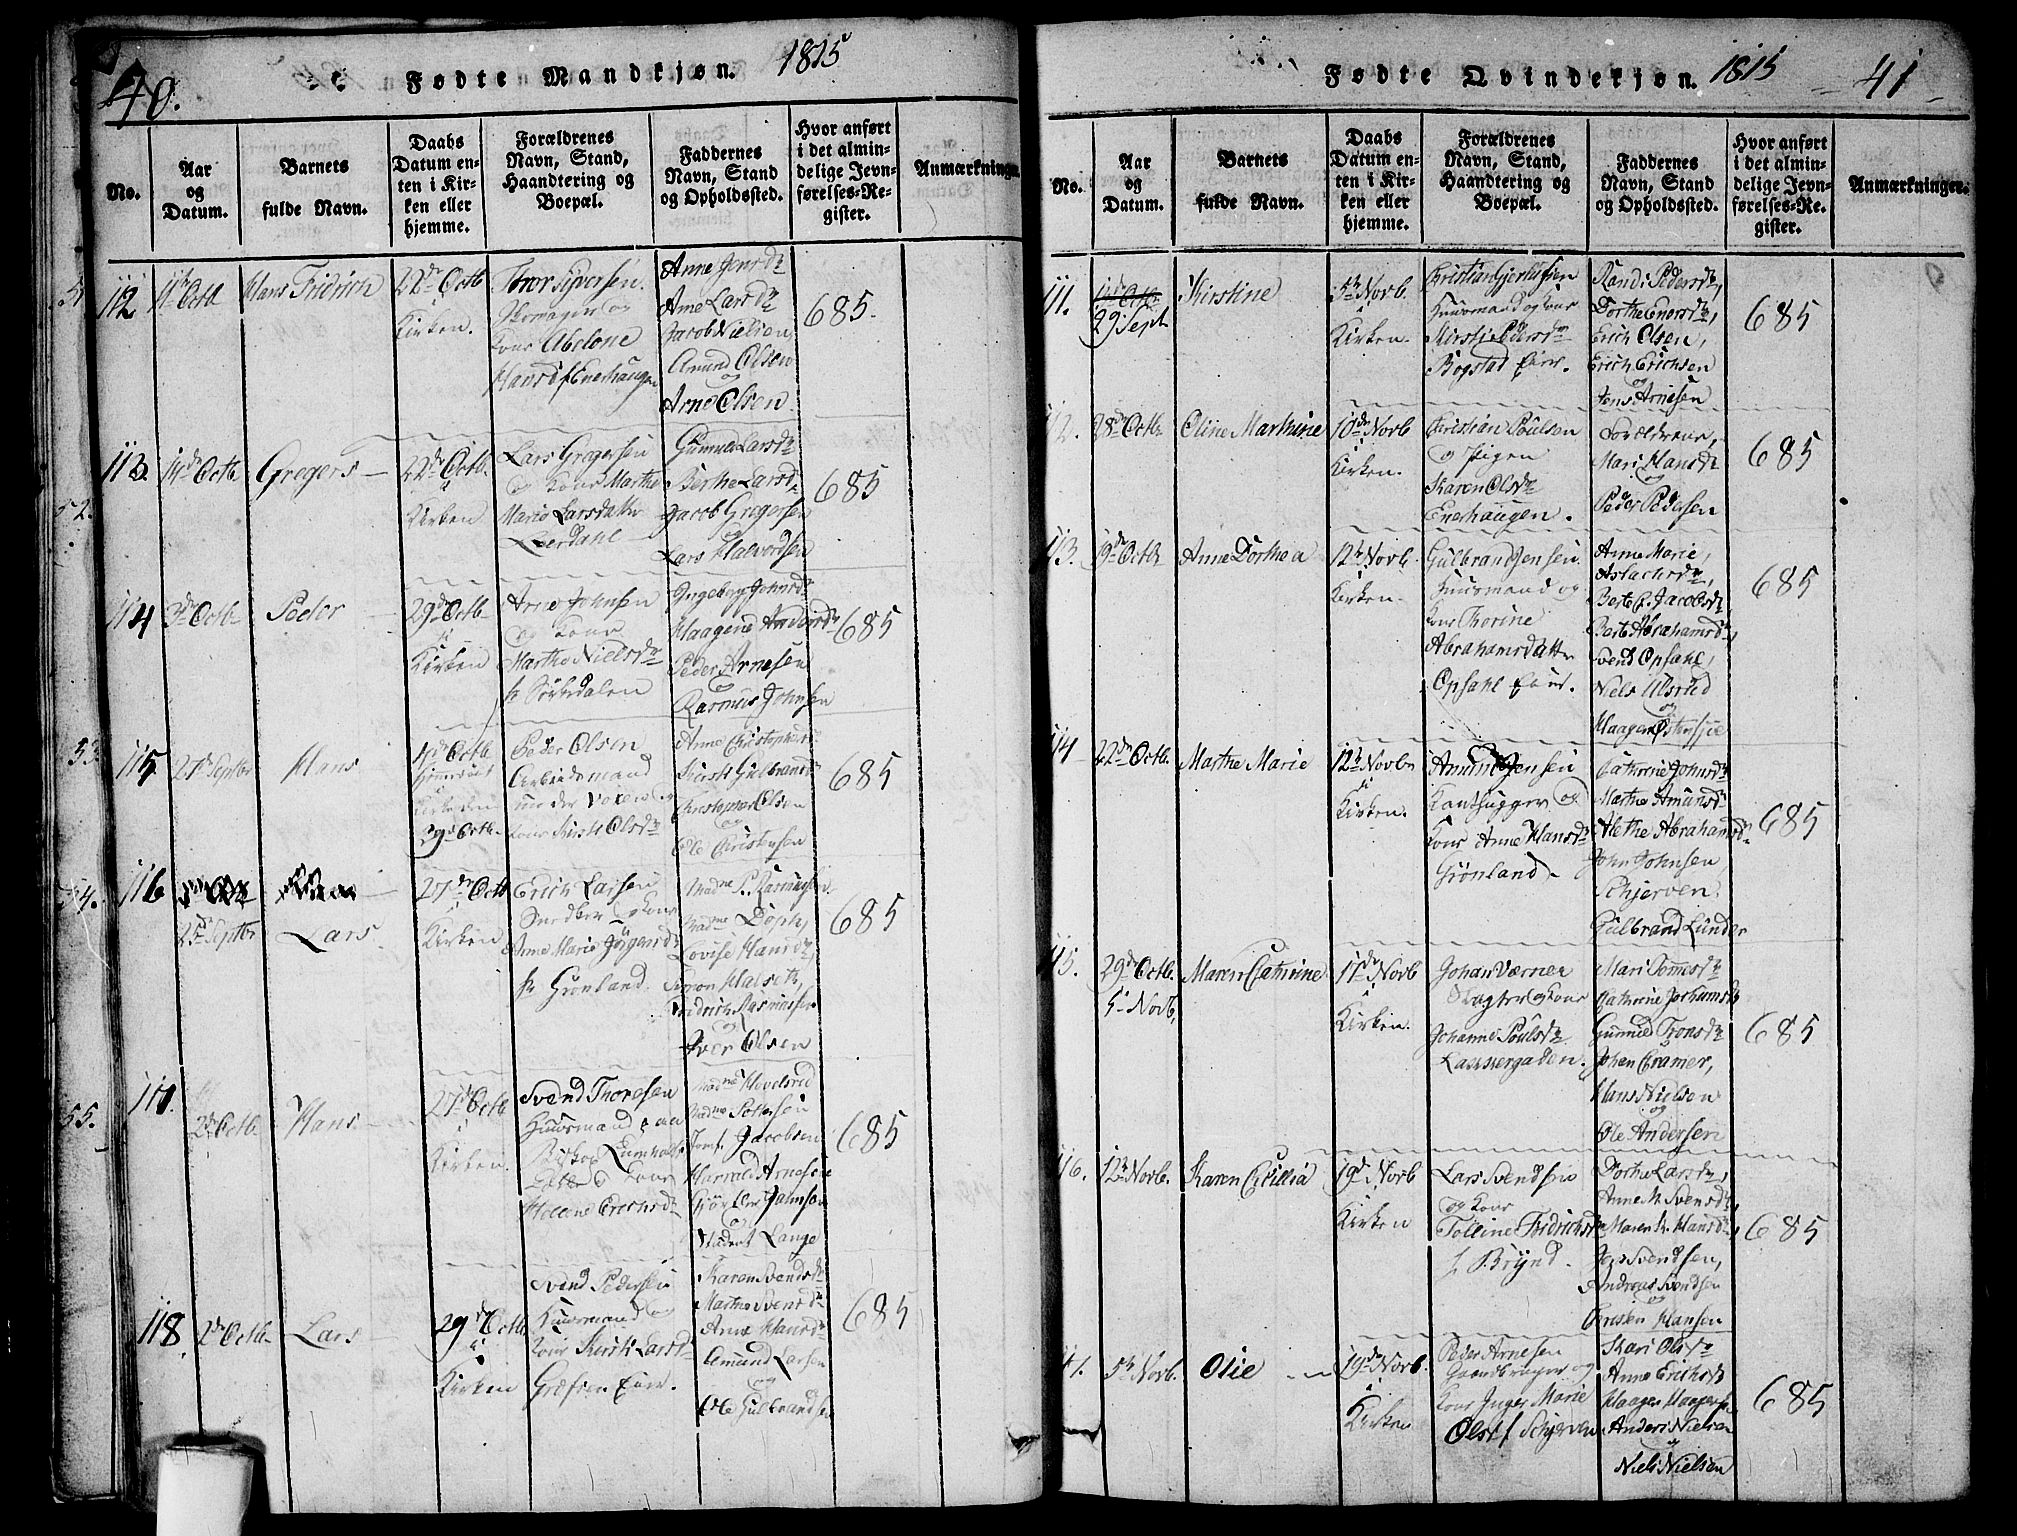 40.
Fødte Mandkjøn. 1815
No.
Aar
og
Datum.
Barnets
fulde Navn.
Daabs
Datum en-
ten i Kir-
ken eller
hjemme.
Forældrenes
Navn, Stand,
Haandtering og
Boepæl.
Faddernes
Navn, Stand
og Opholdssted.
Hvor anført
i det almin-
delige Jevn-
førelses-Re-
gister.
Anmærkninger
112 11te Octb Hans Fridrich
22de Octb
Kirken.
Thor Syversen
Skomager og
Kone Abelone
Hansd f Enerhaugen
Anne Jensdr
Anne Larsdr
Jacob Nielsen
Amund Olsen
og
Arne Olsen
685.
113. 14de Octb Gregers
22de Octb.
i
Kirken
Lars Gregersen
og Kone Marthe
Marie Larsdatter
Gunnild Larsdr
Berthe Larsdr
Jacob Gregersen
og
Lars Halvordsen
685
114 3de Octb Peder
29de Octb
i
Kirken
Arne Johnsen
og Kone
Marthe Nielsdr
fr Sørkedalen
Ingeborg Johnsdr
Haagene Andersdr
Peder Arnesen
og
Rasmus Johnsen
685
115 27de Septbr Hans
Kirken den
29d Octb.
Peder Olsen
Arbeidsmand
under Voxen og
Kone Kirsti Olsdr
Anne Christophersdr
Kirsti Gulbrandsdr
Christopher Olsen
og
Ole Christensen
685
116
25de Septbr Lars.
27de Octb
i
Kirken
Erich Larsen
Snedker og Kone
Anne Marie Jørgensdr
fr Grønland.
Madme P. Rasmussen
Madme Døph,
Lovise Hansdr,
Simon Halseth,
Fridrich Rasmussen
og
Iver Olsen
685
117.
2de Octb. Hans
27de Octb
i
Kirken.
Svend Thoresen
Huusmand paa
Kone
Hollene Erichsdr
Madme Hovelsrud
Madme Pettersen
Jomf. Jacobsen
Harrald Arnesen
og
Student Lange
685
118. 2de Octb. Lars
29de Octb.
i
Kirken
Svend Pedersen
Huusmand og
Kone Kirsti Larsdr
Græfsen Eier.
Karen Svendsdr
Marthe Svensdr
Anne Hansdr
Amund Larsen
og
Ole Gulbrandsen
685
53.
54.
55.
Fødte Qvindekjøn. 1815
41
No.
Aar
og
Datum.
Barnets
fulde Navn.
Daabs
Datum en-
ten i Kir-
ken eller
hjemme.
Forældrenes
Navn, Stand,
Haandtering og
Boepæl.
Faddernes
Navn, Stand
og Opholdssted.
Hvor anført
i det almin-
delige Jevn-
førelses-Re-
gister.
Anmærkninger.
111.
29 Sept
Kirstine
5te Novb.
i
Kirken.
Christian Gjerlufsen
Huusmand og Kone
Kirsti Pedersdr
Bogstad Eier.
Randi Pedersdr,
Dorthe Enersdr,
Erich Olsen,
Erich Erichsen
og
Jens Arnesen
685
112. 28de Octb Oline Marthine
10de Novb
i
Kirken.
Christian Poulsen
og Pigen
Karen Olsdr
Enerhaugen.
Forældrene,
Mari Hansdr
og
Peder Pedersen
685
113. 19de Octb Anne Dorthea
12te Novb.
i
Kirken.
Gulbrand Jensen
Huusmand og
Kone Thorine
Abrahamsdatter
Opsahl Eier.
Anne Marie,
Aslachsdr,
Berte P. Jacobsdr,
Berte Abrahamsdr,
Svend Opsahl,
Niels Ulsrud
og
Haagen Østensjøe
685
114 22de Octb. Marthe Marie
12te Novb
i
Kirken.
Amund Jensen
og
Kone Anne Hansdr
Grønland
Cathrine Johnsdr
Marthe Amunsdr
Alethe Abrahamsdr
John Johnsen
Schjerven
Gulbrand Lunder
685
115. 29de Octb. Maren Cathrine
5te Novb.
17de Novb
i
Kirken.
Johan Værner
Slagter og Kone
Johanne Poulsdr
Lakkegaden.
Mari Tomesdr
Cathrine Jochumsdr
Gunnild Tronsdr
Johan Cramer,
Hans Nielsen
og
Ole Andersen
685
116. 12te Novb. Karen Cicillia
19de Novb
i
Kirken
Lars Svendsen
og Kone
Tolline Fridrichsdr
f Brynd.
Dorthe Larsdr,
Anne M. Svensdr,
Maren K. Hansdr,
Jens Svendsen,
Andreas Svendsen
og
Christen Hansen
685
117. 5te Novb. Olie
19de Novb.
i
Kirken
Peder Arnesen
og
Kone Inger Marie
Olsd f Schjerven
Kari Olsdr
Anne Erichsdr
Haagen Haagensen
Anders Nielsen
og
Niels Nielsen
685